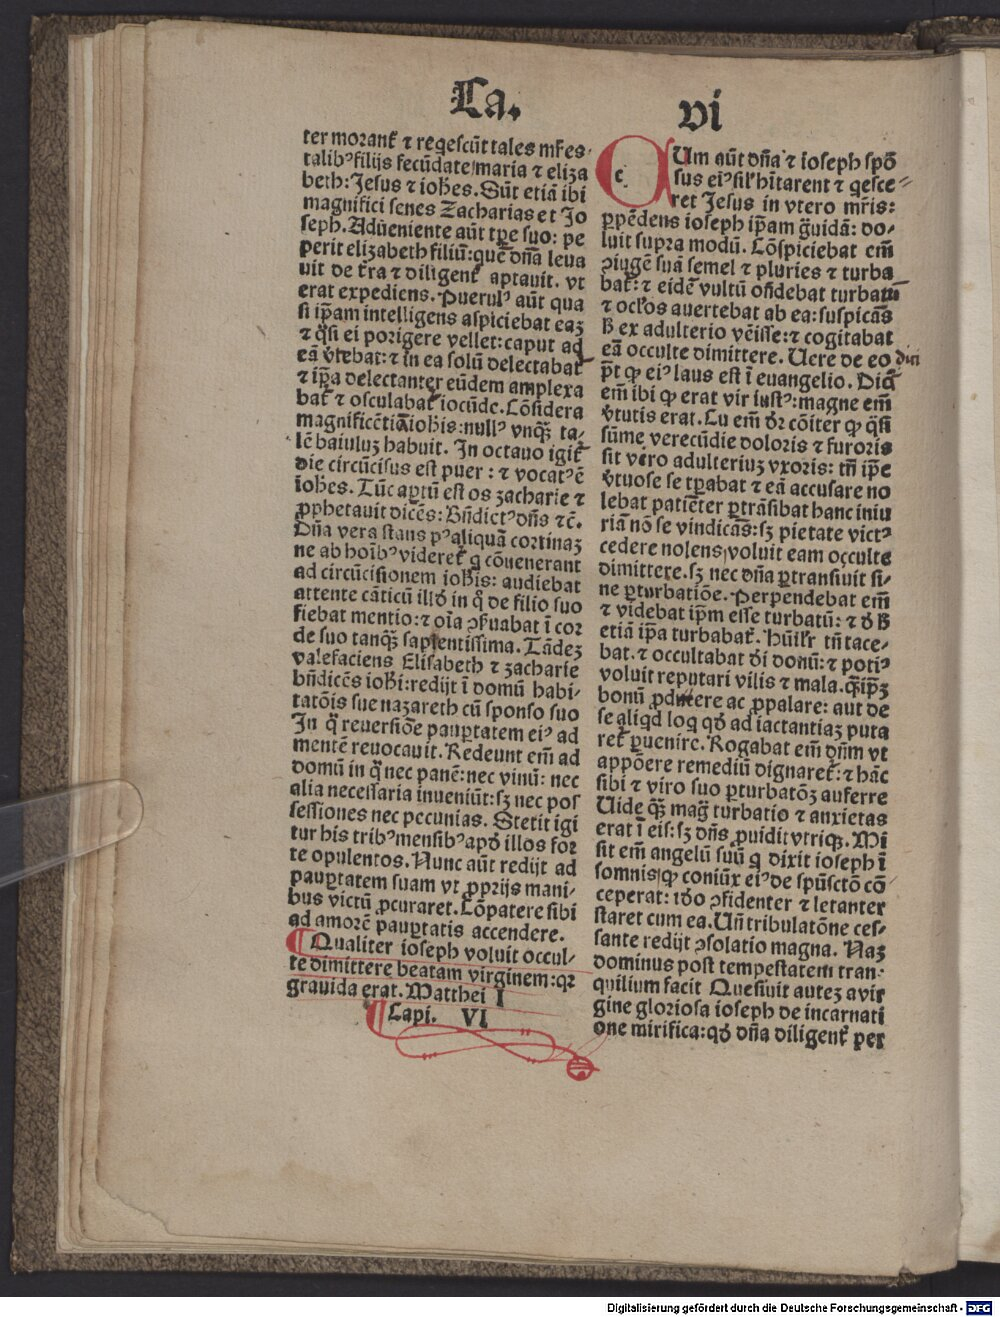 Ca. vi
ter morant᷑ ⁊ reqeſcūt tales mr̄es
talibꝰ filijs fecūdate/maria ⁊ eliza
beth: Jeſus ⁊ ioh̄es. Sūt etiā ibi
magnifici ſenes Zacharias et Jo
ſeph. Adueniente aūt tp̄e ſuo: pe
perit elizabeth filiū: quē dn̄a leua
uit de t̄ra ⁊ diligent᷑ aptauit. vt
erat expediens. Puerulꝰ aūt qua
ſi ip̄am intelligens aſpiciebat eaꝫ
⁊ q̄ſi ei porigere vellet: caput ad
eā v̄tebat: ⁊ in ea ſolū delectabat᷑
⁊ ip̄a delectanter eūdem amplexa
bat᷑ ⁊ oſculabat᷑ iocūde. Cōſidera
magnificētiā ioh̄is: nullꝰ vnqꝫ ta⸗
lē baiuluꝫ habuit. In octauo igit᷑
die circūciſus eſt puer: ⁊ vocatꝰ ē
ioh̄es. Tūc aꝑtū eſt os zacharie ⁊
ꝓphetauit dicēs: Bn̄dictꝰ dn̄s ⁊c̄.
Dn̄a vera ſtans pꝰ aliquā cortinaꝫ
ne ab hoīb̄ꝰ videret᷑ q̄ cōuenerant
ad circūciſionem ioh̄is: audiebat
attente cāticū illd̄ in q̄ de filio ſuo
fiebat mentio: ⁊ oīa ꝯſ̄uabat ī cor
de ſuo tanqꝫ ſapientiſſima. Tādeꝫ
valefaciens Eliſabeth ⁊ zacharie
bn̄dicēs ioh̄i: redijt ī domū habi⸗
tatōis ſue nazareth cū ſponſo ſuo
In q̄ reuerſiōe pauꝑtatem eiꝰ ad
mentē reuocauit. Redeunt em̄ ad
domū in q̄ nec panē: nec vinū: nec
alia neceſſaria inueniūt: ſꝫ nec poſ
ſeſſiones nec pecunias. Stetit igi
tur his tribꝰ menſibꝰ apd̄ illos for
te opulentos. Nunc aūt redijt ad
pauꝑtatem ſuam vt ꝓprijs mani⸗
bus victū ꝓcuraret. Cōpatere ſibi
ad amorē pauꝑtatis accendere.
Qualiter ioſeph voluit occul⸗
te dimittere beatam virginem: qꝛ
grauida erat. Matthei I
Capi. VI
c Um aūt dn̄a ⁊ ioſeph ſpō
ſus eiꝰ ſil̄ hītarent ⁊ qeſce⸗
ret Jeſus in vtero mr̄is:
ꝑpēdens ioſeph ip̄am gͣuidā: do⸗
luit ſupra modū. Cōſpiciebat em̄
ꝯiugē ſuā ſemel ⁊ pluries ⁊ turba
bat᷑: ⁊ eidē vultū oñdebat turbatū
⁊ oc̄los auertebat ab ea: ſuſpicās
ꝙ ex adulterio vēiſſe: ⁊ cogitabat
eā occulte dimittere. Uere de eo dici
p̄t ꝙ eiꝰ laus eſt ī euangelio. Dic̄t᷑
em̄ ibi ꝙ erat vir iuſtꝰ: magne em̄
v̄tutis erat. Cū em̄ dr̄ cōiter ꝙ q̄ſi
ſūme verecūdie doloris ⁊ furoris
ſit viro adulteriuꝫ vxoris: tn̄ ip̄e
v̄tuoſe ſe tꝑabat ⁊ eā accuſare no
lebat patiēter ꝑtrāſibat hanc iniu
riā nō ſe vindicās: ſꝫ pietate victꝰ
cedere nolens/ voluit eam occulte
dimittere. ſꝫ nec dn̄a ꝑtranſiuit ſi⸗
ne ꝑturbatiōe. Perpendebat em̄
⁊ videbat ip̄m eſſe turbatū: ⁊ d̄ ꝙ
etiā ip̄a turbabat᷑. Hūil̄r tn̄ tace⸗
bat. ⁊ occultabat d̄i donū: ⁊ potiꝰ
voluit reputari vilis ⁊ mala. q̄ ip̄ꝫ
bonū ꝓducere ac ꝓpalare: aut de
ſe aliqd loq̄ qd̄ ad iactantiaꝫ puta
ret᷑ ꝑuenire. Rogabat em̄ dn̄m vt
appōere remediū dignaret᷑: ⁊ hāc
ſibi ⁊ viro ſuo ꝑturbatōꝫ auferre
Uide qꝫ mag̃ turbatio ⁊ anxietas
erat ī eis: ſꝫ dn̄s ꝓuidit vtriqꝫ. Mi
ſit em̄ angelū ſuū q̄ dixit ioſeph ī
ſomnis/ ꝙ coniūx eiꝰ de ſpūſctō cō
ceperat: iḋo ꝯfidenter ⁊ letanter
ſtaret cum ea. Un̄ tribulatōne ceſ⸗
ſante redijt ꝯſolatio magna. Naꝫ
dominus poſt tempeſtatem tran⸗
quilium facit Queſiuit auteꝫ a vir
gine glorioſa ioſeph de incarnati
one mirifica: qd̄ dn̄a diligent᷑ ꝑer
Digitalisierung gefördert durch die Deutsche Forschungsgemeinschaft - DFG